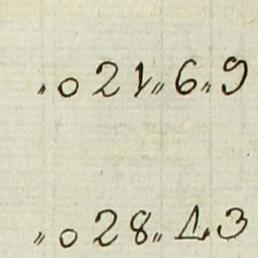 .021„6„9
„028„1.3